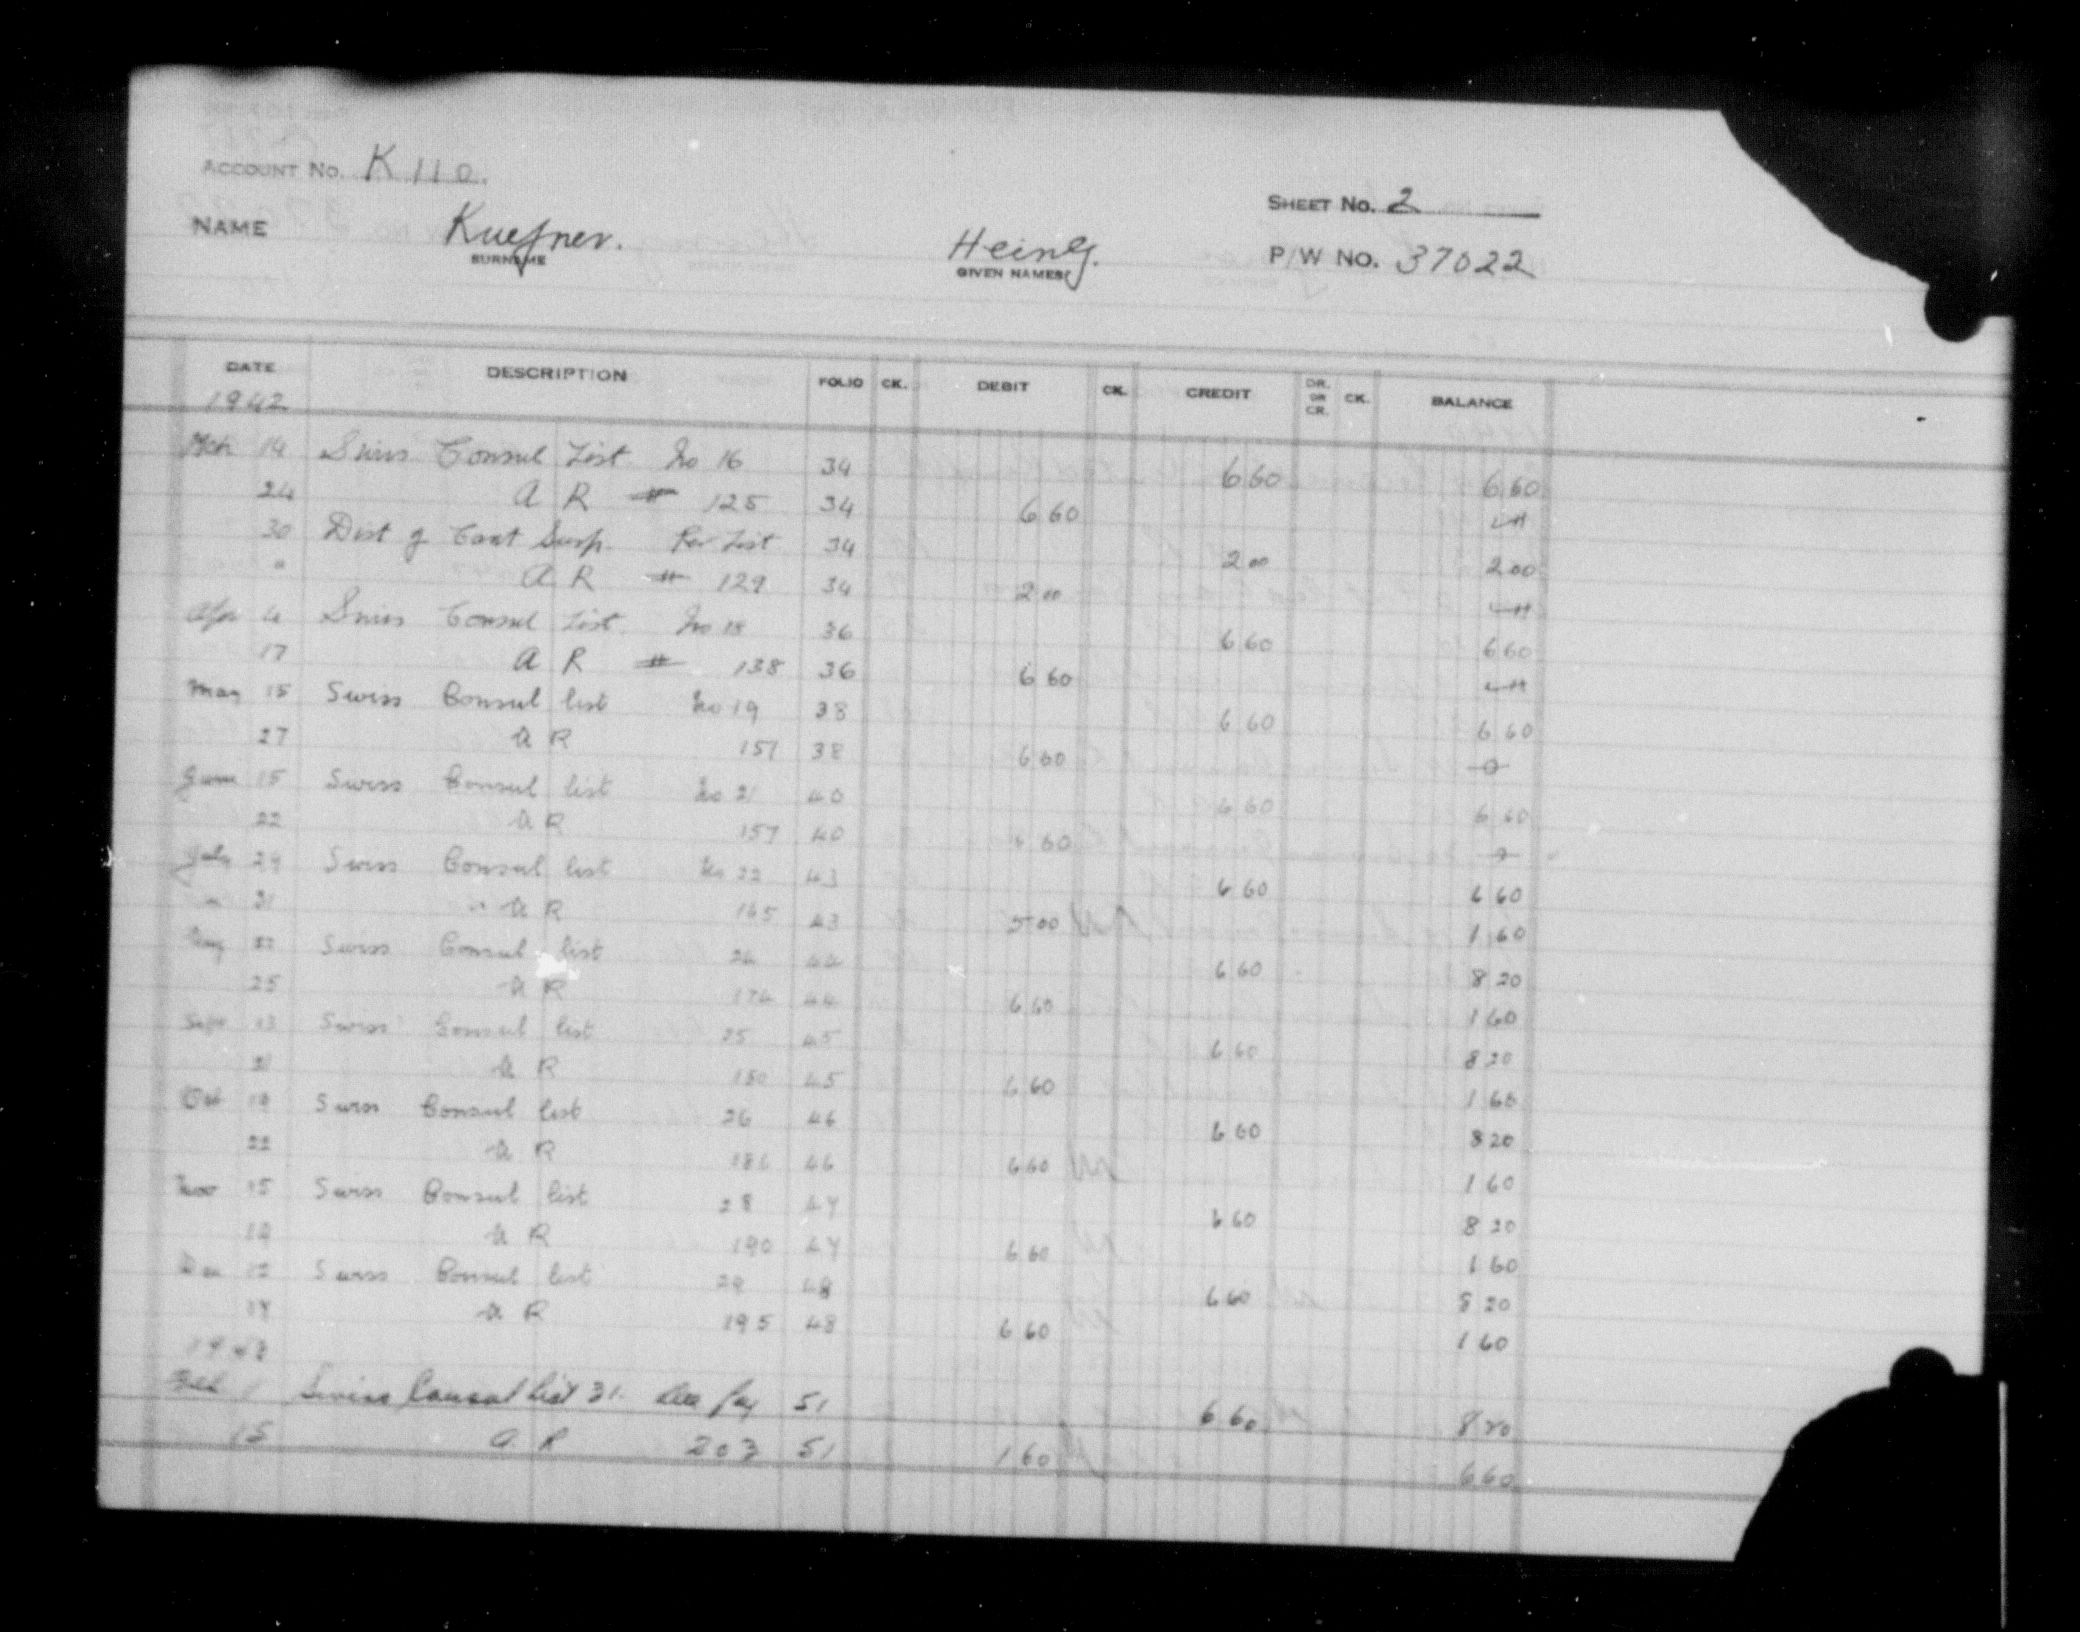 ACCOUNT No. K 110.
SHEET No. 2
NAME Kuefner. Heinz.
SURNAME GIVEN NAMES
P/W No. 37022
DATE DESCRIPTION FOLIO CK. DEBIT CK. CREDIT DR. OR CR. CK. BALANCE
1942
Mch 14 Swiss Consul List No 16 34 6 60 6 60
24 A R # 125 34 6 60
30 Dist of Cant Susp. Per List 34 2 00 2 00
" A R # 129 34 2 00
Apr 4 Swiss Consul List No 18 36 6 60 6 60
17 A R # 138 36 6 60
May 15 Swiss Consul list No 19 38 6 60 6 60
27 A R 151 38 6 60 0
June 15 Swiss Consul list No 21 40 6 60 6 60
22 A R 157 40 6 60
July 29 Swiss Consul list No 22 43 6 60 6 60
" 31 A R 165 43 5 00 1 60
Aug Swiss Consul list 24 44 6 60 8 20
25 A R 174 44 6 60 1 60
Sept 13 Swiss Consul list 25 45 6 60 8 20
21 A R 180 45 6 60 1 60
Oct Swiss Consul list 26 46 6 60 8 20
22 A R 186 46 6 60 1 60
Nov 15 Swiss Consul list 28 47 6 60 8 20
A R 190 47 6 60 1 60
Dec 12 Swiss Consul list 29 48 6 60 8 20
A R 195 48 6 60 1 60
1943
Feb 1 Swiss Consul List 31 Dec Pay 51 6 60 8 20
15 A R 203 51 1 60 6 60